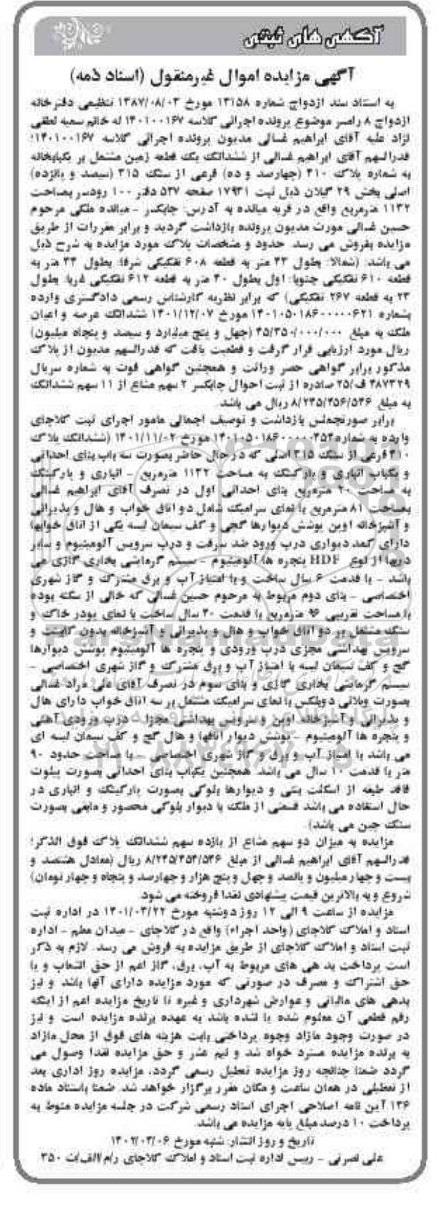 آگهی های ثبتی
آگهی مزایده اموال غیرمنقول (اسناد ذمه)
به استناد سند ازدواج شماره ۱۳۱۵۸ مورخ ۱۳۸۷/۰۸/۰۳ تنظیمی دفترخانه
ازدواج ۸ رامسر موضوع پرونده اجرائی کلاسه ۱۴۰۱۰۰۱۶۷ له خانم سمیه لطفی
نژاد علیه آقای ابراهیم غسالی مدیون پرونده اجرائی کلاسه ۱۴۰۱۰۰۱۶۷؛
قدرالسهم آقای ابراهیم غسالی از ششدانگ یک قطعه زمین مشتمل بر یکبابخانه
به شماره پلاک ۴۱۰ (چهارصد و ده) فرعی از سنگ ۳۱۵ (سیصد و پانزده)
اصلی بخش ۲۹ گیلان ذیل ثبت ۱۷۹۳۱ صفحه ۵۳۷ دفتر ۱۰۰ رودسر بمساحت
۱۱۳۲ مترمربع واقع در قریه میانده به آدرس: چابکسر - میانده ملکی مرحوم
حسین غسالی مورث مدیون پرونده بازداشت گردید و برابر مقررات از طریق
مزایده بفروش می رسد. حدود و مشخصات پلاک مورد مزایده به شرح ذیل
می باشد: (شمالا: بطول ۴۳ متر به قطعه ۶۰۸ تفکیکی شرقا: بطول ۳۴ متر به
قطعه ۶۱۰ تفکیکی جنوبا: اول بطول ۴۰ متر به قطعه ۶۱۲ تفکیکی غربا: بطول
۲۳ به قطعه ۲۶۷ تفکیکی) که برابر نظریه کارشناس رسمی دادگستری وارده
بشماره ۱۴۰۱۰۵۰۱۸۶۰۰۰۰۰۶۲۱ مورخ ۱۴۰۱/۱۲/۰۷ ششدانگ عرصه و اعیان
ملک به مبلغ ۴۵/۳۵۰/۰۰۰/۰۰۰ (چهل و پنج میلیارد و سیصد و پنجاه میلیون)
ریال مورد ارزیابی قرار گرفت و قطعیت یافت که قدرالسهم مدیون از پلاک
مذکور برابر گواهی حصر وراثت و همچنین گواهی فوت به شماره سریال
۴۸۷۳۲۹ ف/۲۵ صادره از ثبت احوال چابکسر ۲ سهم مشاع از ۱۱ سهم ششدانگ
به مبلغ ۸/۲۴۵/۴۵۶/۵۴۶ ریال می باشد.
برابر صورتجلس بازداشت و توصیف اجمالی مامور اجرای ثبت کلاچای
وارده به شماره ۱۴۰۱۰۵۰۱۸۶۰۰۰۰۰۴۵۳ مورخ ۱۴۰۱/۱۱/۰۲ (ششدانگ پلاک
۴۱۰ فرعی از سنگ ۳۱۵ اصلی که در حال حاضر بصورت سه باب بنای احداثی
و یکباب انباری و پارکینگ به مساحت ۱۱۳۲ مترمربع - انباری و پارکینگ
به مساحت ۲۰ مترمربع بنای احداثی اول در تصرف آقای ابراهیم غسالی
بمساحت ۸۱ مترمربع با نمای سرامیک شامل دو اتاق خواب و هال و پذیرائی
و آشپزخانه اوپن پوشش دیوارها گچی و کف سیمان لیسه یکی از اتاق خوابها
دارای کمد دیواری درب ورود ضد سرقت و درب سرویس آلومینیوم و سایر
دربها از نوع HDF پنجره ها آلومینیوم - سیستم گرمایشی بخاری گازی می
باشد - با قدمت ۶ سال ساخت و با امتیاز آب و برق مشترک و گاز شهری
اختصاصی - بنای دوم مربوط به مرحوم حسین غسالی که خالی از سکنه بوده
با مساحت تقریبی ۹۶ مترمربع با قدمت ۳۰ سال ساخت با نمای پودر خاک و
سنگ مشتمل بر دو اتاق خواب و هال و پذیرائی و آشپزخانه بدون کابینت و
سرویس بهداشتی مجزی درب ورودی و پنجره ها آلومینیوم پوشش دیوارها
گچ و کف سیمان لیسه با امتیاز آب و برق مشترک و گاز شهری اختصاصی -
سیستم گرمایشی بخاری گازی و بنای سوم در تصرف آقای علی مراد غسالی
بصورت ویلائی دوبلکس با نمای سرامیک مشتمل بر سه اتاق خواب دارای هال
و پذیرائی و آشپزخانه اوپن و سرویس بهداشتی مجزا - درب ورودی آهنی
و پنجره ها آلومینیوم - پوشش دیوار اتاقها و هال گچ و کف سیمان لیسه ای
می باشد با امتیاز آب و برق و گاز شهری اختصاصی - با مساحت حدود ۹۰
متر با قدمت ۱۰ سال می باشد. همچنین یکباب بنای احداثی بصورت پیلوت
فاقد طبقه از اسکلت بتنی و دیوارها بلوکی بصورت پارکینگ و انباری در
حال استفاده می باشد قسمتی از ملک با دیوار بلوکی محصور و مابقی بصورت
سنگ چین می باشد).
مزایده به میزان دو سهم مشاع از یازده سهم ششدانگ پلاک فوق الذکر؛
قدرالسهم آقای ابراهیم غسالی از مبلغ ۸/۲۴۵/۴۵۴/۵۴۶ ریال (معادل هشتصد و
بیست و چهار میلیون و پانصد و چهل و پنج هزار و چهارصد و پنجاه و چهار تومان)
شروع و به بالاترین قیمت پیشنهادی نقدا فروخته می شود.
مزایده از ساعت ۹ الی ۱۲ روز دوشنبه مورخ ۱۴۰۱/۰۳/۲۲ در اداره ثبت
اسناد و املاک کلاچای (واحد اجراء) واقع در کلاچای - میدان معلم - اداره
ثبت اسناد و املاک کلاچای از طریق مزایده به فروش می رسد. لازم به ذکر
است پرداخت بدهی های مربوط به آب، برق، گاز اعم از حق انشعاب و یا
حق اشتراک و مصرف در صورتی که مورد مزایده دارای آنها باشد و نیز
بدهی های مالیاتی و عوارض شهرداری و غیره تا تاریخ مزایده اعم از اینکه
رقم قطعی آن معلوم شده یا نشده باشد به عهده برنده مزایده است و نیز
در صورت وجود مازاد وجوه پرداختی بابت هزینه های فوق از محل مازاد
به برنده مزایده مسترد خواه شد و نیم عشر و حق مزایده نقدا وصول می
گردد ضمنا چنانچه روز مزایده تعطیل رسمی گردد، مزایده روز اداری بعد
از تعطیلی در همان ساعت و مکان مقرر برگزار خواهد شد. ضمنا باستناد ماده
۱۳۶ آیین نامه اصلاحی اجرای اسناد رسمی شرکت در جلسه مزایده منوط به
پرداخت ۱۰ درصد مبلغ پایه مزایده می باشد.
تاریخ و روز انتشار: شنبه مورخ ۱۴۰۲/۰۳/۰۶
علی نصرتی - رییس اداره ثبت اسناد و املاک کلاچای رام/الف/ث ۳۵۰